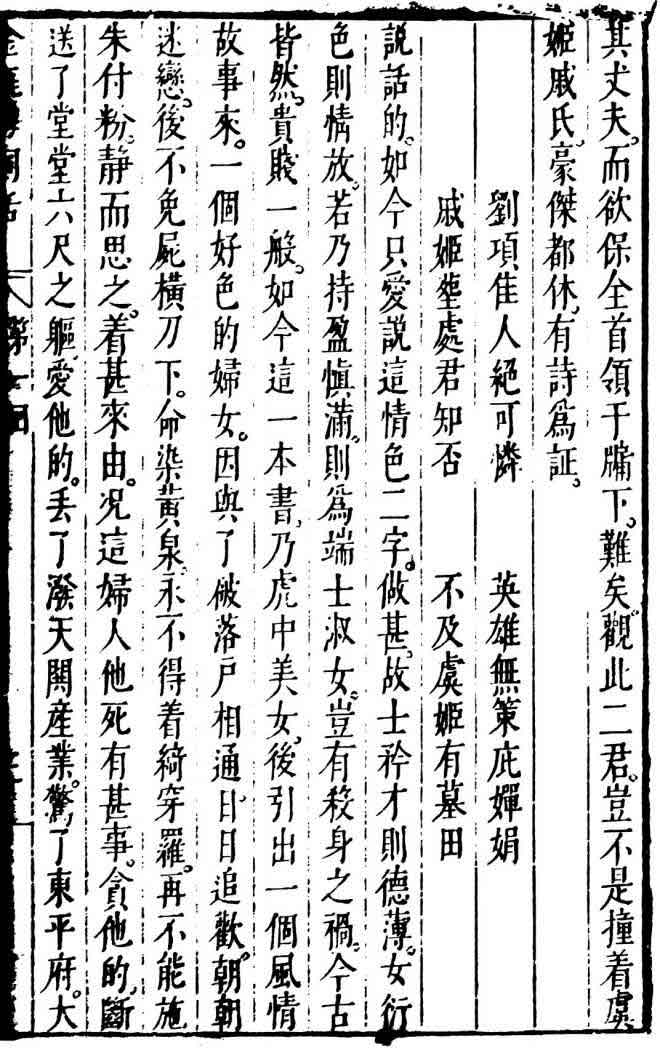 其丈夫。而欲保全首領于牖下。難矣。觀此二君。豈不是撞着虞
姬戚氏。豪傑都休。有詩爲証。
劉項佳人絕可憐　英雄無策庇嬋娟
戚姬塟處君知否　不及虞姬有墓田
說話的。如今只愛說這情色二字。做甚。故士矜才則德薄。女衍
色則情放。若乃持盈愼滿。則爲端士淑女。豈有殺身之禍。今古
皆然。貴賤一般。如今這一本書。乃虎中美女。後引出一個風情
故事來。一個好色的婦女。因與了破落戶相通。日日追歡。朝朝
迷戀。後不免屍橫刀下。命染黃泉。永不得着綺穿羅。再不能施
朱付粉。静而思之。着甚來由。况這婦人他死有甚事。貪他的。斷
送了堂堂六尺之軀。愛他的。丢了潑天閧産業。驚了東平府。大